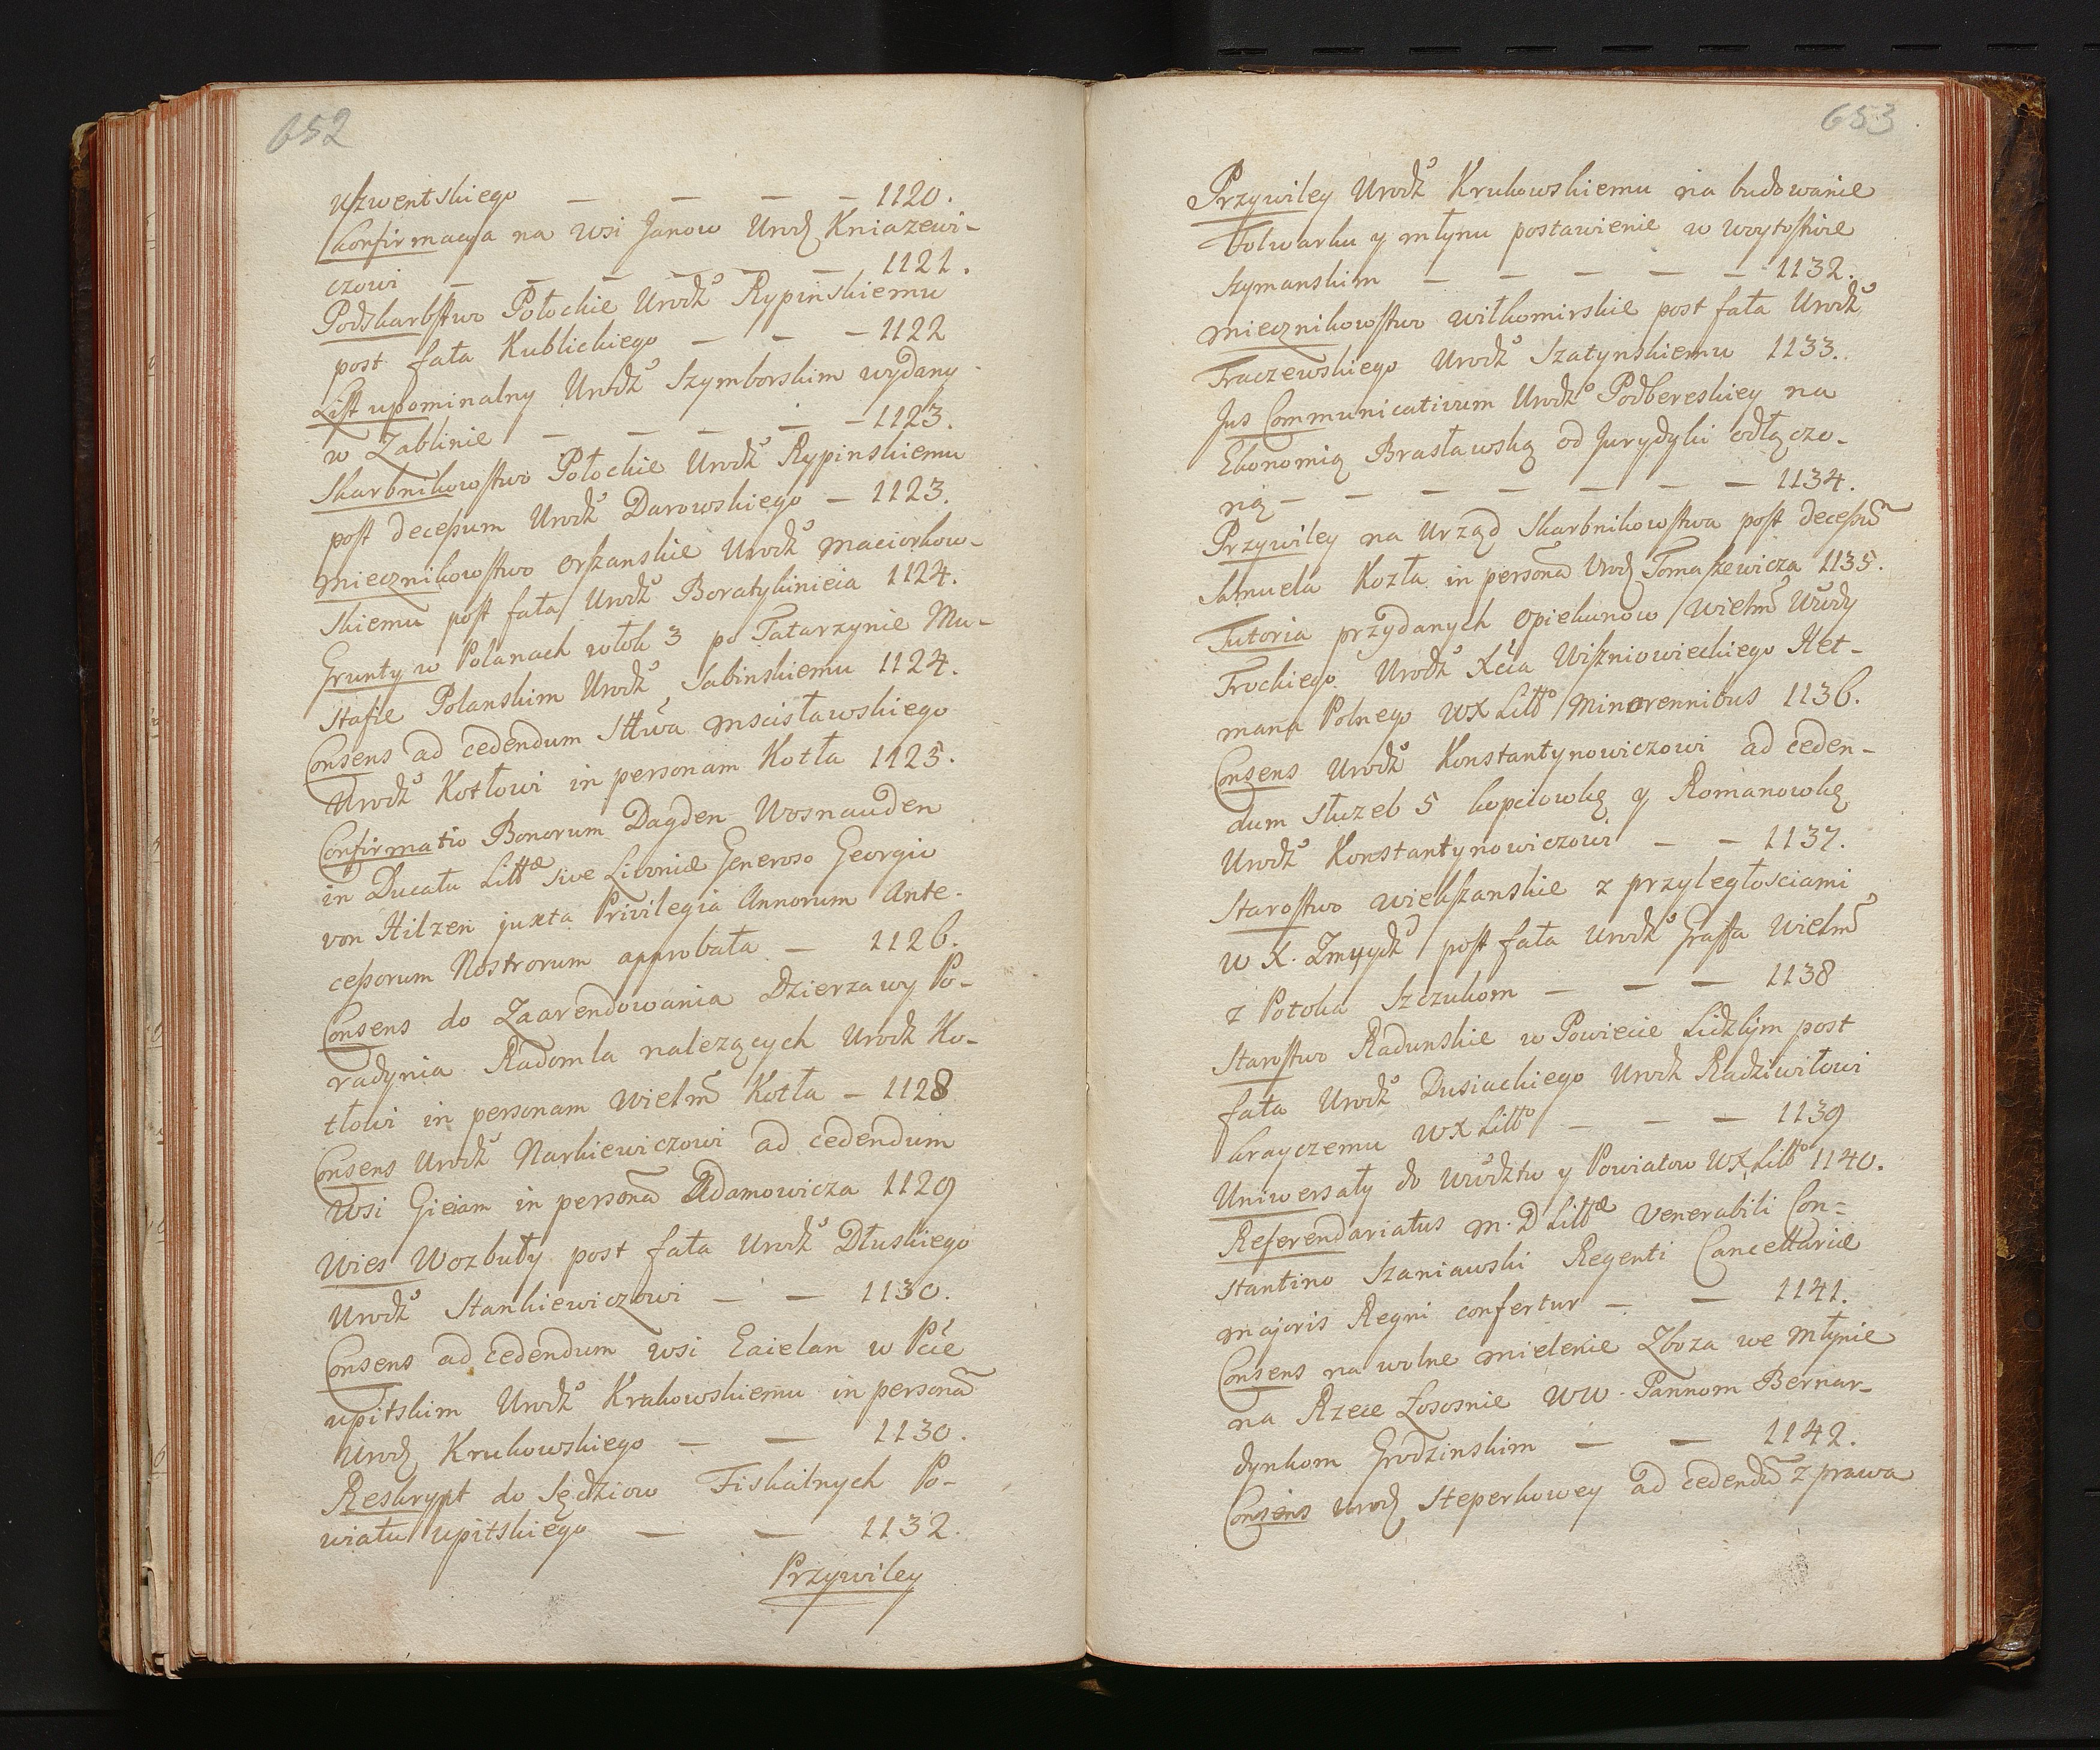 652
Uszwentskiego — — — — 1120.
Confirmacya na wsi Janow Urodz Kniazewi-
czowi — — — — — 1121.
Podskarbstwo Połockie Urodzo Rypinskiemu
post fata Kublickiego — — — 1122
List upominalny Urodzo Szymborskim wydany
w Zablinie — — — — — 1123.
Skarbnikowstwo Połockie Urodzo Rypinskiemu
post decessum Urodzo Darowskiego — 1123.
Miecznikowstwo Orszanskie Urodzo Maciorkow-
skiemu post fata Urodzo Boratyłuniecia 1124.
Grunty w Polanach włok 3 po Tatarzynie Mu-
stafie Polanskim Urodzo Sabinskiemu 1124.
Consens ad cedendum Sttwa Mscisławskiego
Urodzo Kotłowi in personam Kotła 1125.
Confirmatio Bonorum Dagden Wosnauden
in Ducatu Littæ sive Livoniæ Generoso Georgio
von Hilzen juxta Privilegia Annorum Ante-
cessorum Nostrorum approbata — 1126.
Consens do Zaarendowania Dzierzawy Po-
radynia Radomla nalezących Urodz Ko-
tłowi in personam Wielm̃ Kotła — 1128
Consens Urodzo Narkiewiczowi ad cedendum
Wsi Gieiam in personã Adamowicza 1129
Wies Wozbuty post fata Urodzo Dłuskiego
Urodzo Stankiewiczowi — — 1130.
Consens ad cedendum wsi Eaielan w Pcie
Upitskim Urodzo Krukowskiemu in personã
Urodz Krukowskiego — — 1130.
Reskrypt do Sędziow Fiskalnych Po-
wiatu Upitskiego — — 1132.
Przywiley
653
Przywiley Urodzo Krukowskiemu na budowanie
Folwarku y młynu postawienie w Woytostwie
Szymanskim — — — — — 1132.
Miecznikowstwo Wiłkomirskie post fata Urodzo
Fraczewskiego Urodzo Szatynskiemu 1133.
Jus Communicativum Urodzo Podbereskiey na
Ekonomią Brasławską od Jurydyki odłączo-
ną — — — — — — — 1134.
Przywiley na Urząd Skarbnikowstwa post decessũ
Samuela Kozła in personã Urodz Tomaszewicza 1135.
Tutoria przydanych Opiekunow Wielm̃ Wdy
Trockiego Urodzo Xcia Wiszniowieckiego Het-
mana Polnego WXLitto Minorennibus 1136.
Consens Urodzo Konstantynowiczowi ad ceden-
dum słuzeb 5 Kopciowkę y Romanowkę
Urodzo Konstantynowiczowi — — 1137.
Starostwo Wiekszanskie z przyległosciami
w X. Zmuydzo post fata Urodzo Graffa Wielm̃
z Potoka Szczukom — — — 1138
Starostwo Radunskie w Powiecie Lidzkim post
fata Urodzo Dusiackiego Urodz Radziwiłowi
Krayczemu WXLitto — — — 1139
Uniwersały do Wdztw y Powiatow WXLitto 1140.
Referendariatus M. D Littæ Venerabili Con-
stantino Szaniawski Regenti Cancellariæ
Majoris Regni confertur — — 1141.
Consens na wolne mielenie Zboza we Młynie
na Rzece Łososnie WW. Pannom Bernar-
dynkom Grodzinskim — — 1142.
Consens Urodz Steperkowey ad cedendũ z prawa